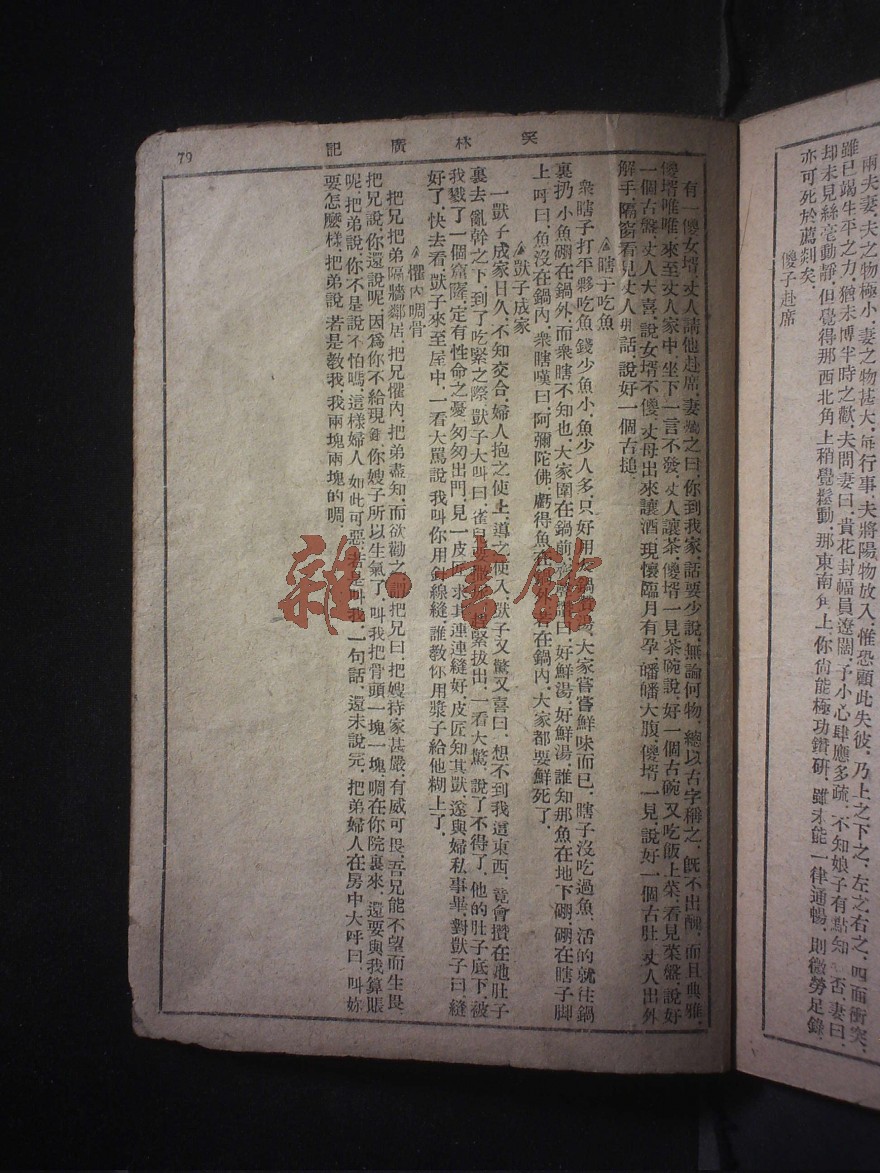 兩夫妻，夫之物極小，妻之物甚大，每行事，夫將陽物放入，惟恐顧此失彼，乃上之下之，左之右之，四面衝突，
雖已竭生平之力，猶未博半時之歡，夫問妻曰，貴花封幅員遼闊，予小心肆應多疏，不知娘子有點知否，妻曰，
却未見絲毫動靜，但覺得那西北角上稍覺鬆動，那東南角上，你尙能極功鑽研，雖未能一律通暢，則微勞足錄，
亦可死於薦剡矣，
傻子赴席
笑林廣記
79
有一傻女壻，丈人請他赴席，妻囑之曰，你到我家，話要少說，無論何物，總以古字稱之，旣不出醜，而且典雅，
傻壻唯唯，來至丈人家中，坐下一言不發，丈人讓茶，傻壻一見茶碗說，好一個古碗，又吃飯上菜，看見菜盤，說好
一個古盤，丈人大喜，說女壻不傻，丈母出來讓酒，現懷臨月有孕，皤皤大腹，傻壻一見，說好一個古肚，丈人出外
解手，隔窗看見丈人那話，說好一個古搥，
瞎子吃魚
衆瞎子打平夥吃魚，錢少魚小，魚少人多，只好用大鍋，大家嘗嘗鮮味而已，瞎子沒吃過魚，活的就往鍋
裏扔，小魚硼在鍋外，而衆瞎不知也，大家圍在鍋前，曰，好鮮湯，好鮮湯，誰知那魚在地下硼，硼在瞎子脚
上，呼曰，魚沒在鍋內，衆瞎嘆曰，阿彌陀佛，虧得魚在，若在鍋內，大家都要鮮死了，
獃子成家
一獃子成家日久，不知交合，婦人抱之使上，導之使入，獃子又驚又喜曰，想不到我這東西，竟會攢在她肚子
裏去，亂幹之下，到了吃緊之際，獃子大叫曰，緊拔出，一看大驚，說了不得了，他的肚子底下，被
我戮了一個窟窿，定有性命之憂，匆匆出門，見一皮，求其連連縫好，皮匠知其獃，遂與婦私事畢，對獃子曰，縫
好了，快去看，獃子來至屋中，一看大罵說，我叫你用針線縫，誰教你用漿子給他糊上了，
懼內啁骨
把兄把弟，隔牆鄰居，把兄懼內，把弟盡知，而欲勸之，謂把兄曰，把嫂待家甚嚴，有威可畏，吾兄能不望而生畏
把兄說，你還說呢，因爲你不給現錢，你嫂子所以生氣了，叫我把骨頭一塊一塊，啁在你院裏來，還要與我算賬
呢，把弟說，你不是說不怕嗎，這樣婦人，如此可惡，若是叫我，一句話，還未說完，把弟婦人在房中大呼曰，叫妳
要怎麽樣，把弟說，若是教我，我兩塊兩塊的啁，
雜·書館